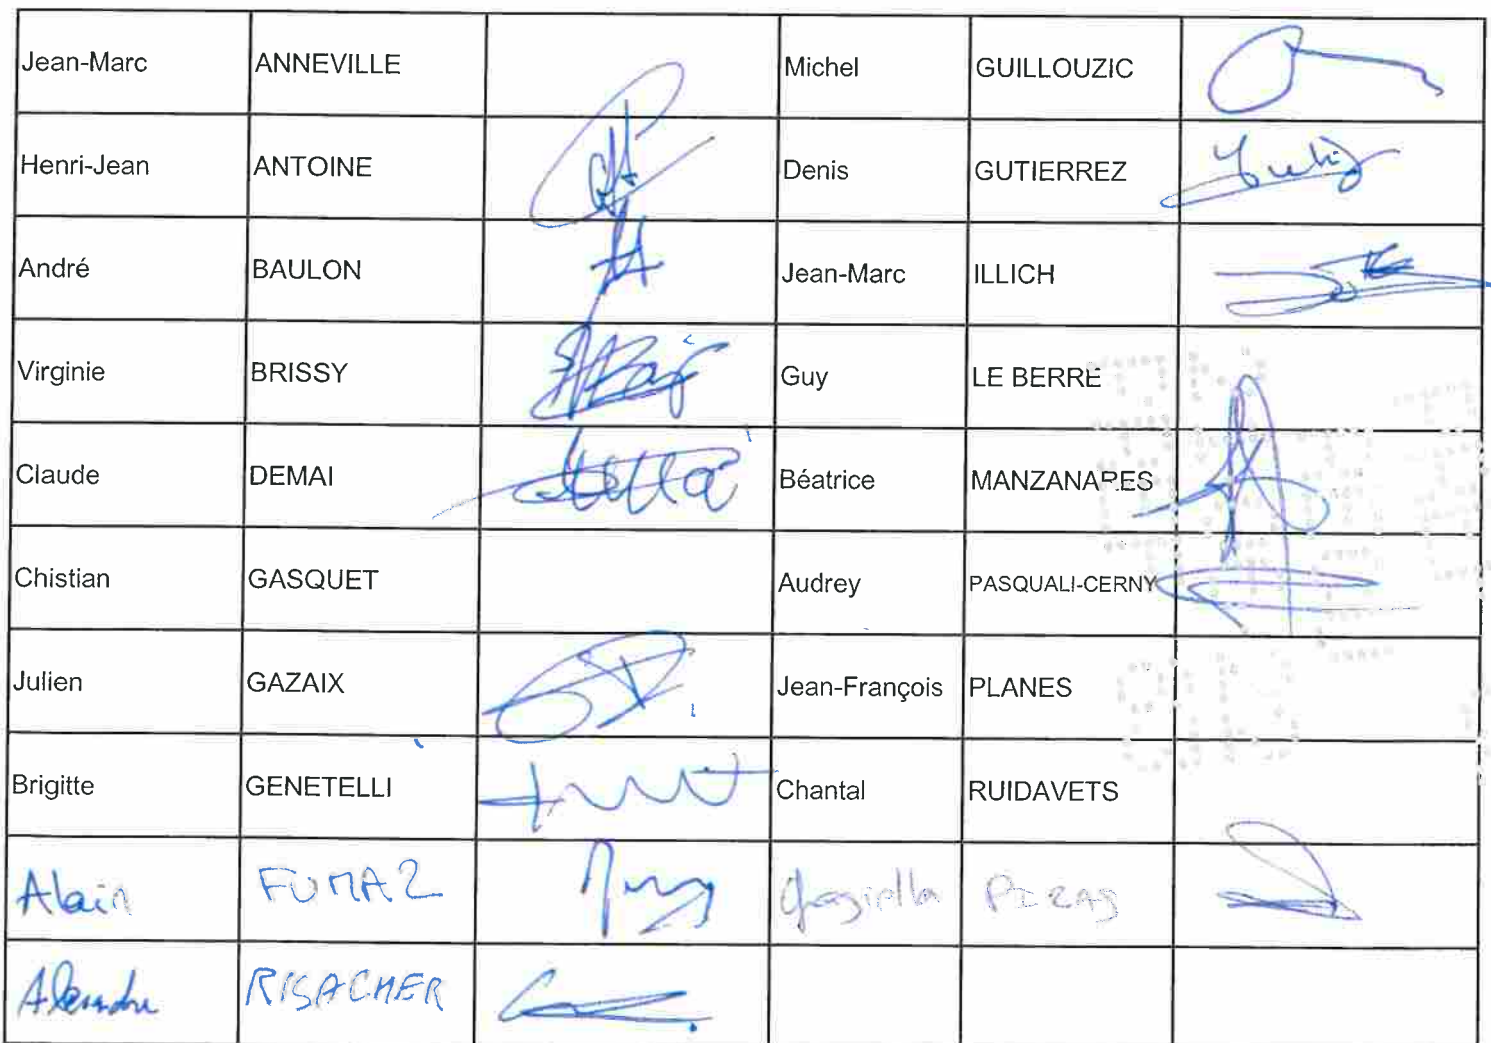 Jean-Marc ANNEVILLE Michel GUILLOUZIC
Henri-Jean ANTOINE Denis GUTIERREZ
André BAULON Jean-Marc ILLICH
Virginie BRISSY Guy LE BERRE
Claude DEMAI Béatrice MANZANARES
Chistian GASQUET Audrey PASQUALI-CERNY
Julien GAZAIX Jean-François PLANES
Brigitte GENETELLI Chantal RUIDAVETS
Alain FUMAZ
RISACHER